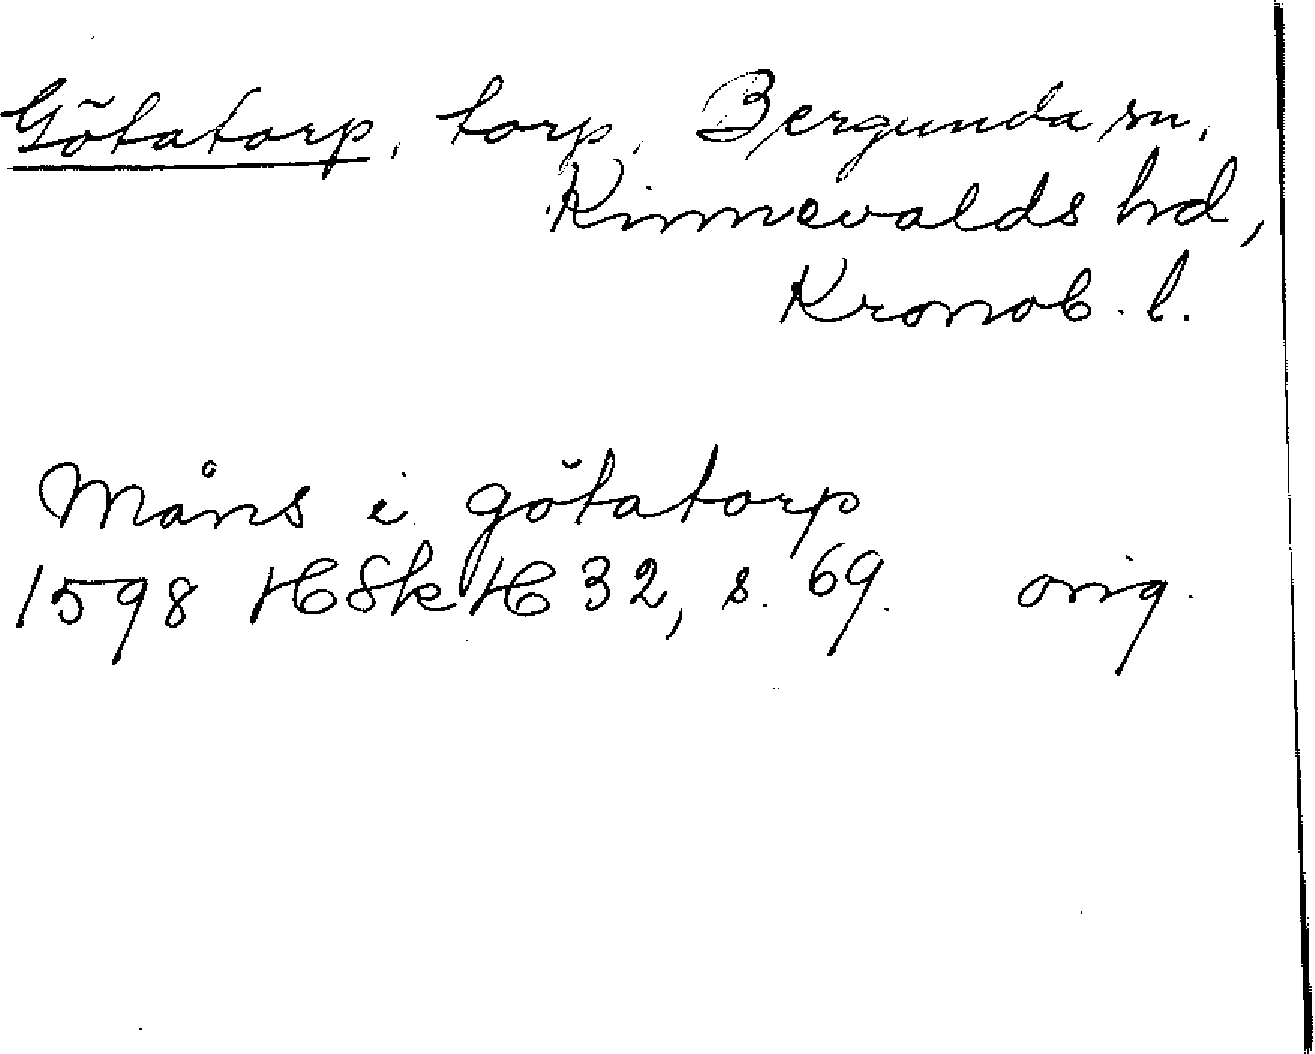 Götatorp, torp, Bergunda sn,
Kinnevalds hd,
Kronob. l.
Måns i götatorp
1598 HSkH 32, s. 69. orig.